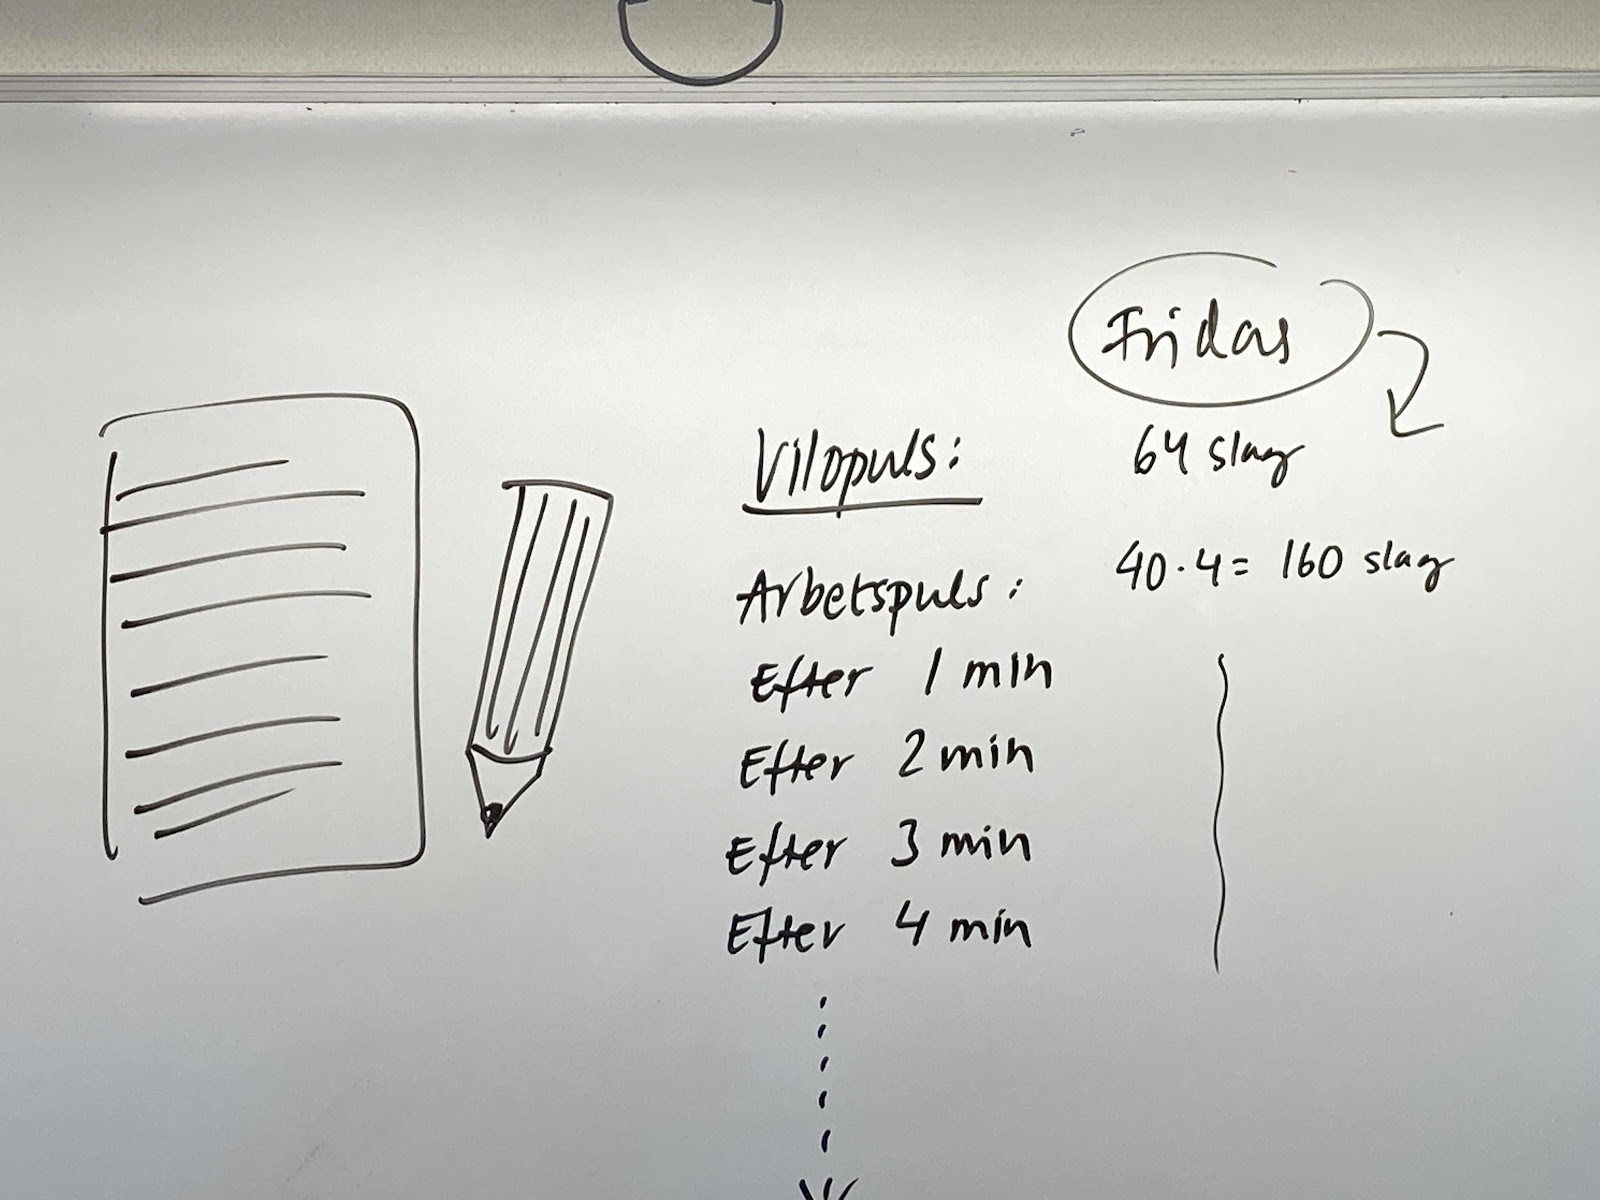 Fridas
Vilopuls: 64 slag
Arbetspuls: 40·4= 160 slag
Efter 1 min
Efter 2 min
Efter 3 min
Efter 4 min